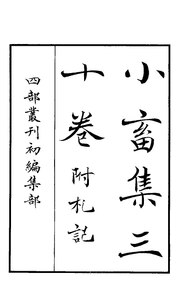 小畜集三
十卷附札記
四部叢刊初編集部